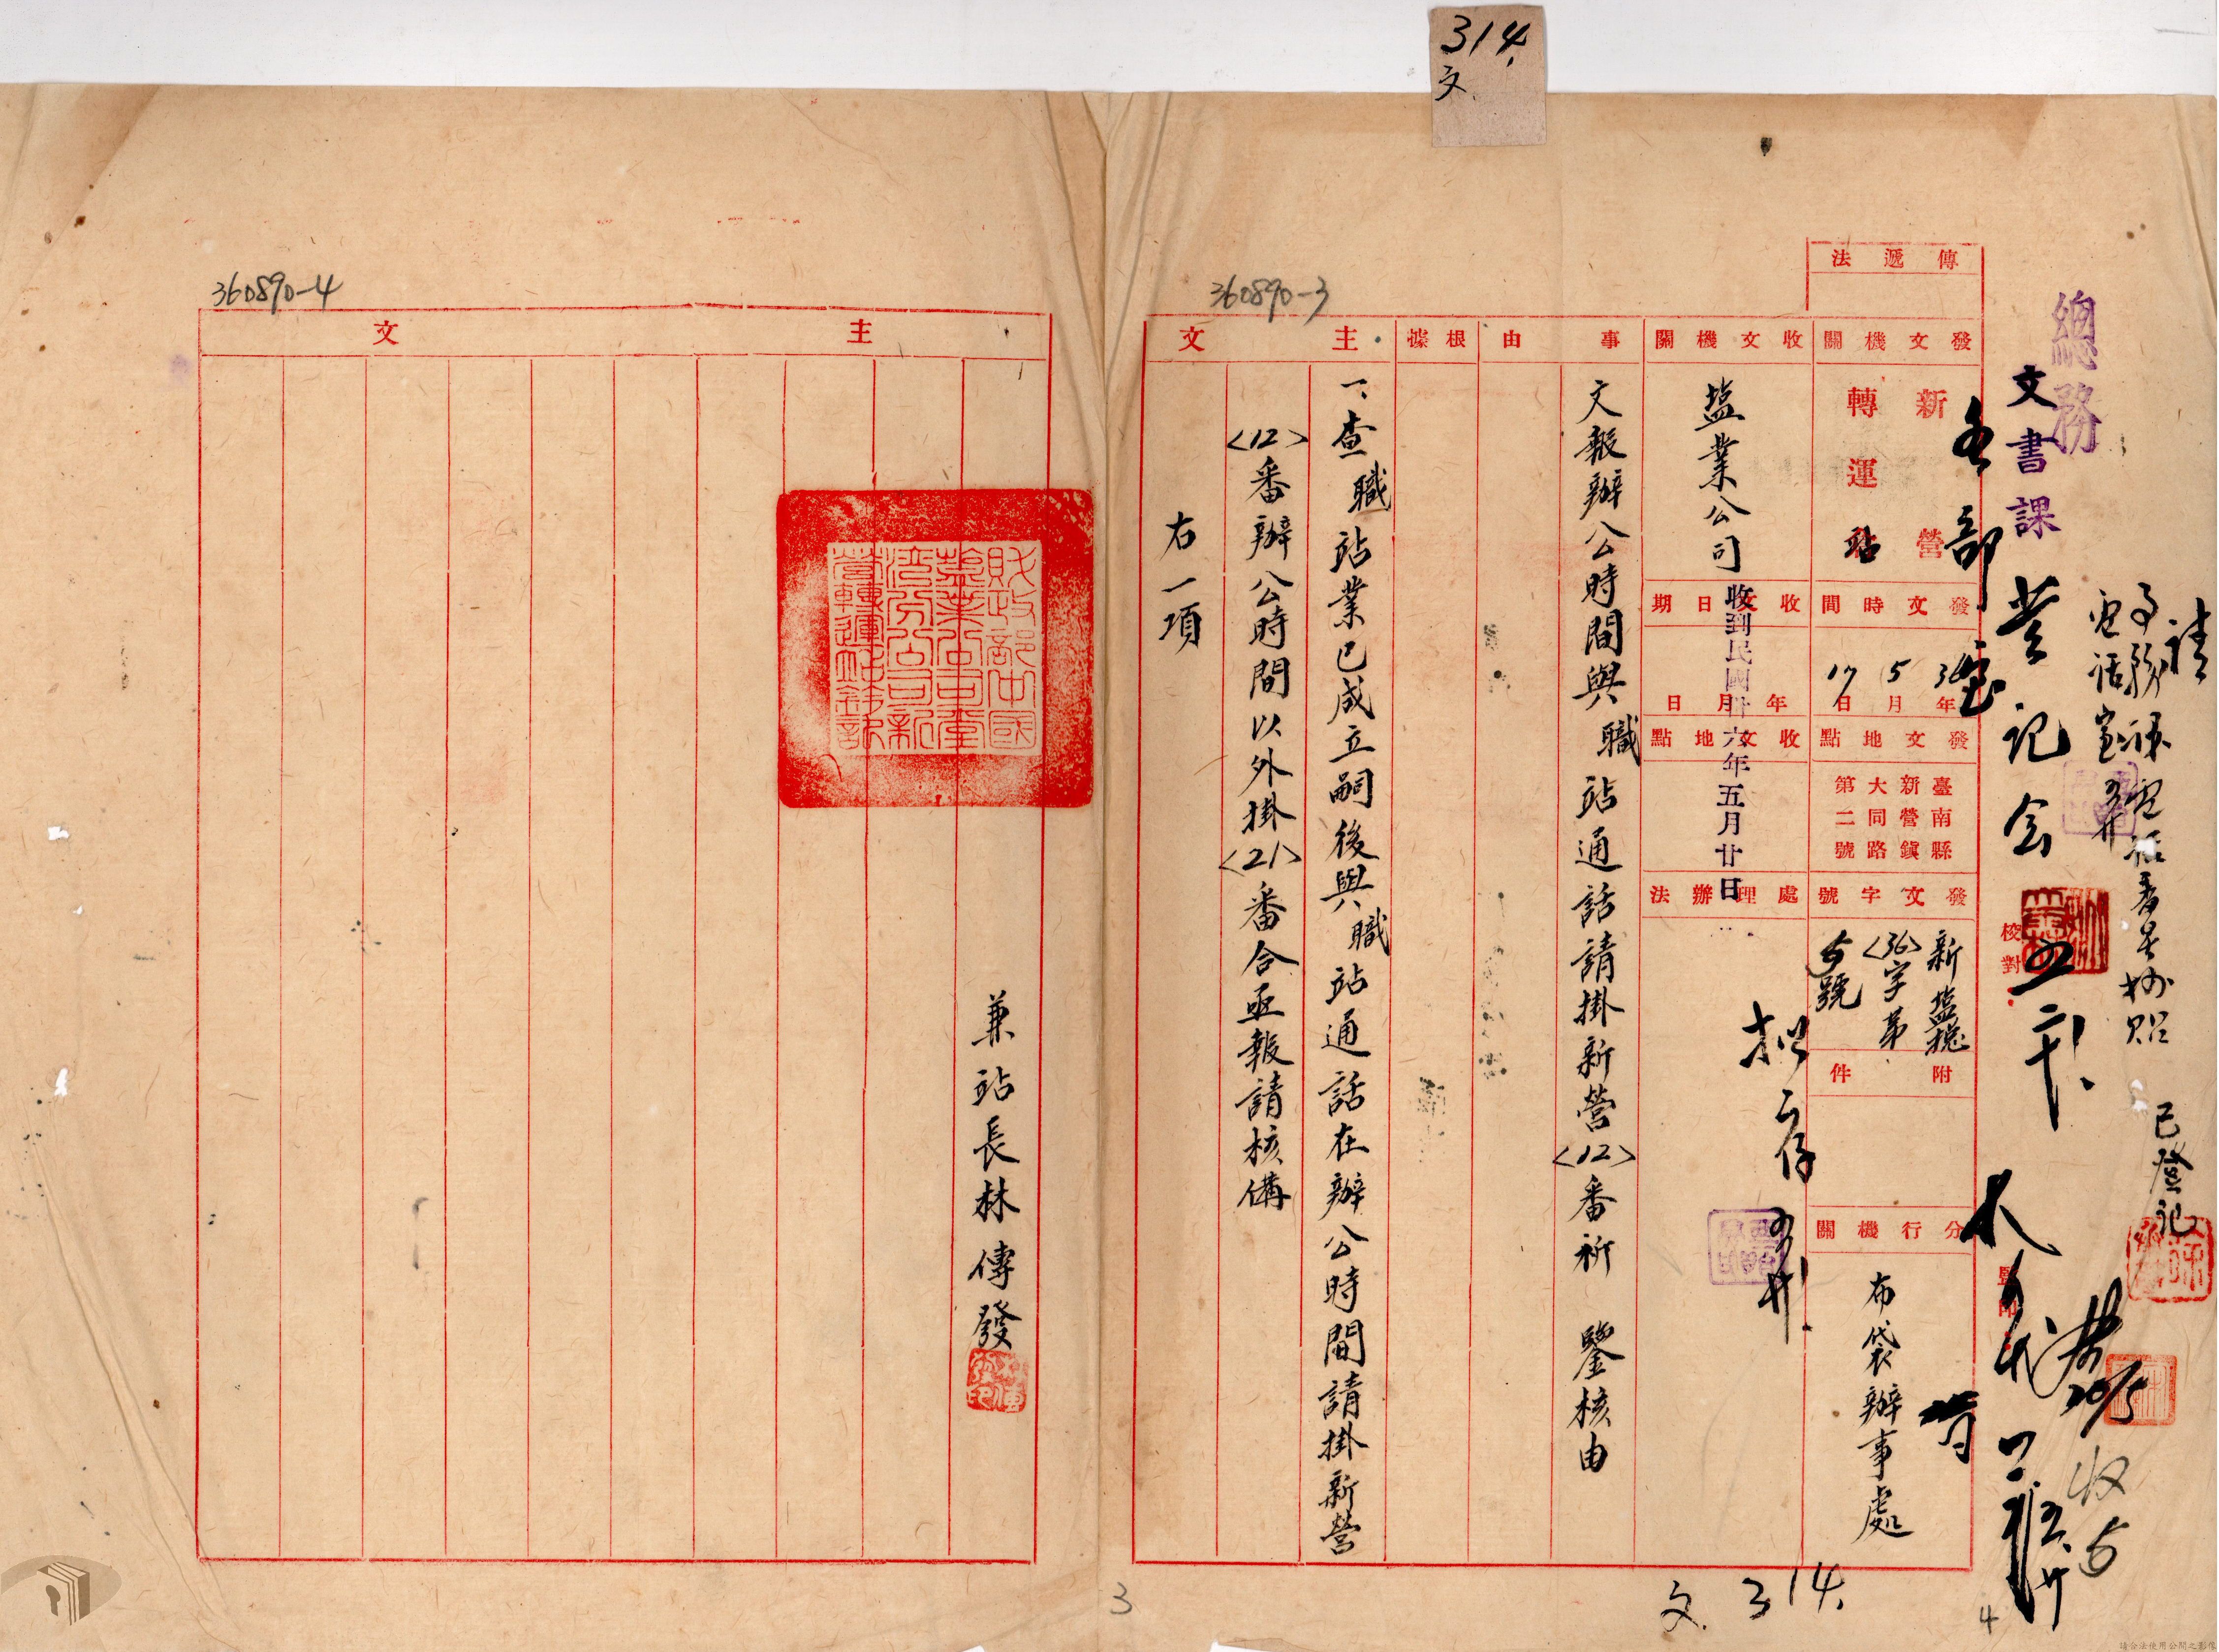 314.
文.
傳遞法
發文機關
新營
轉運站
發文時間
36年5月17日
發文地點
臺南縣
新營鎮
大同路
第二號
發文字號
新鹽總
<36>字第
5號
附件
分行機關
布袋辦事處
收文機關
塩業公司
收文日期
年月日
收到民國卅六年五月廿日
收文地點
處理辦法
拟存
事由
文報辦公時間與職站通話請掛新營<12>番祈 鑒核由
根據
主文
一、查職站業已成立嗣後與職站通話在辦公時間請掛新營
<12>番辦公時間以外掛<21>番合亟報請核備
右一項
360890-3
主文
財政部中國
鹽業公司臺
灣分公司新
營轉運站鈐記
兼站長林傳發
林傳發印
360890-4
總務
文書課
校對
監印
請
電話室
已登記
20/5
收5
文. 314.
3
4
請合法使用公開之影像